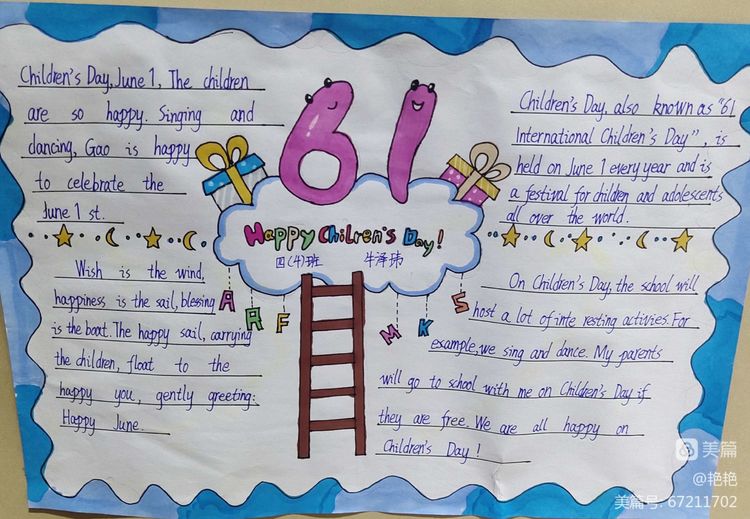 Children's Day, June 1, The children
are so happy. Singing and
dancing, Gao is happy
to celebrate the
June 1 st.
61
Children's Day, also known as "61
International Children's Day", is
held on June 1 every year and is
a festival for children and adolescents
all over the world.
Happy Chilren's Day!
四(4)班 牛泽玮
Wish is the wind,
happiness is the sail, blessing
is the boat. The happy sail, carrying
the children, float to the
happy you, gently greeting:
Happy June.
A R F M K S
On Children's Day, the school will
host a lot of inte resting activies. For
example, we sing and dance. My parents
will go to school with me on Children's Day if
they are free. We are all happy on
Children's Day!
美篇
@艳艳
美篇号: 67211702